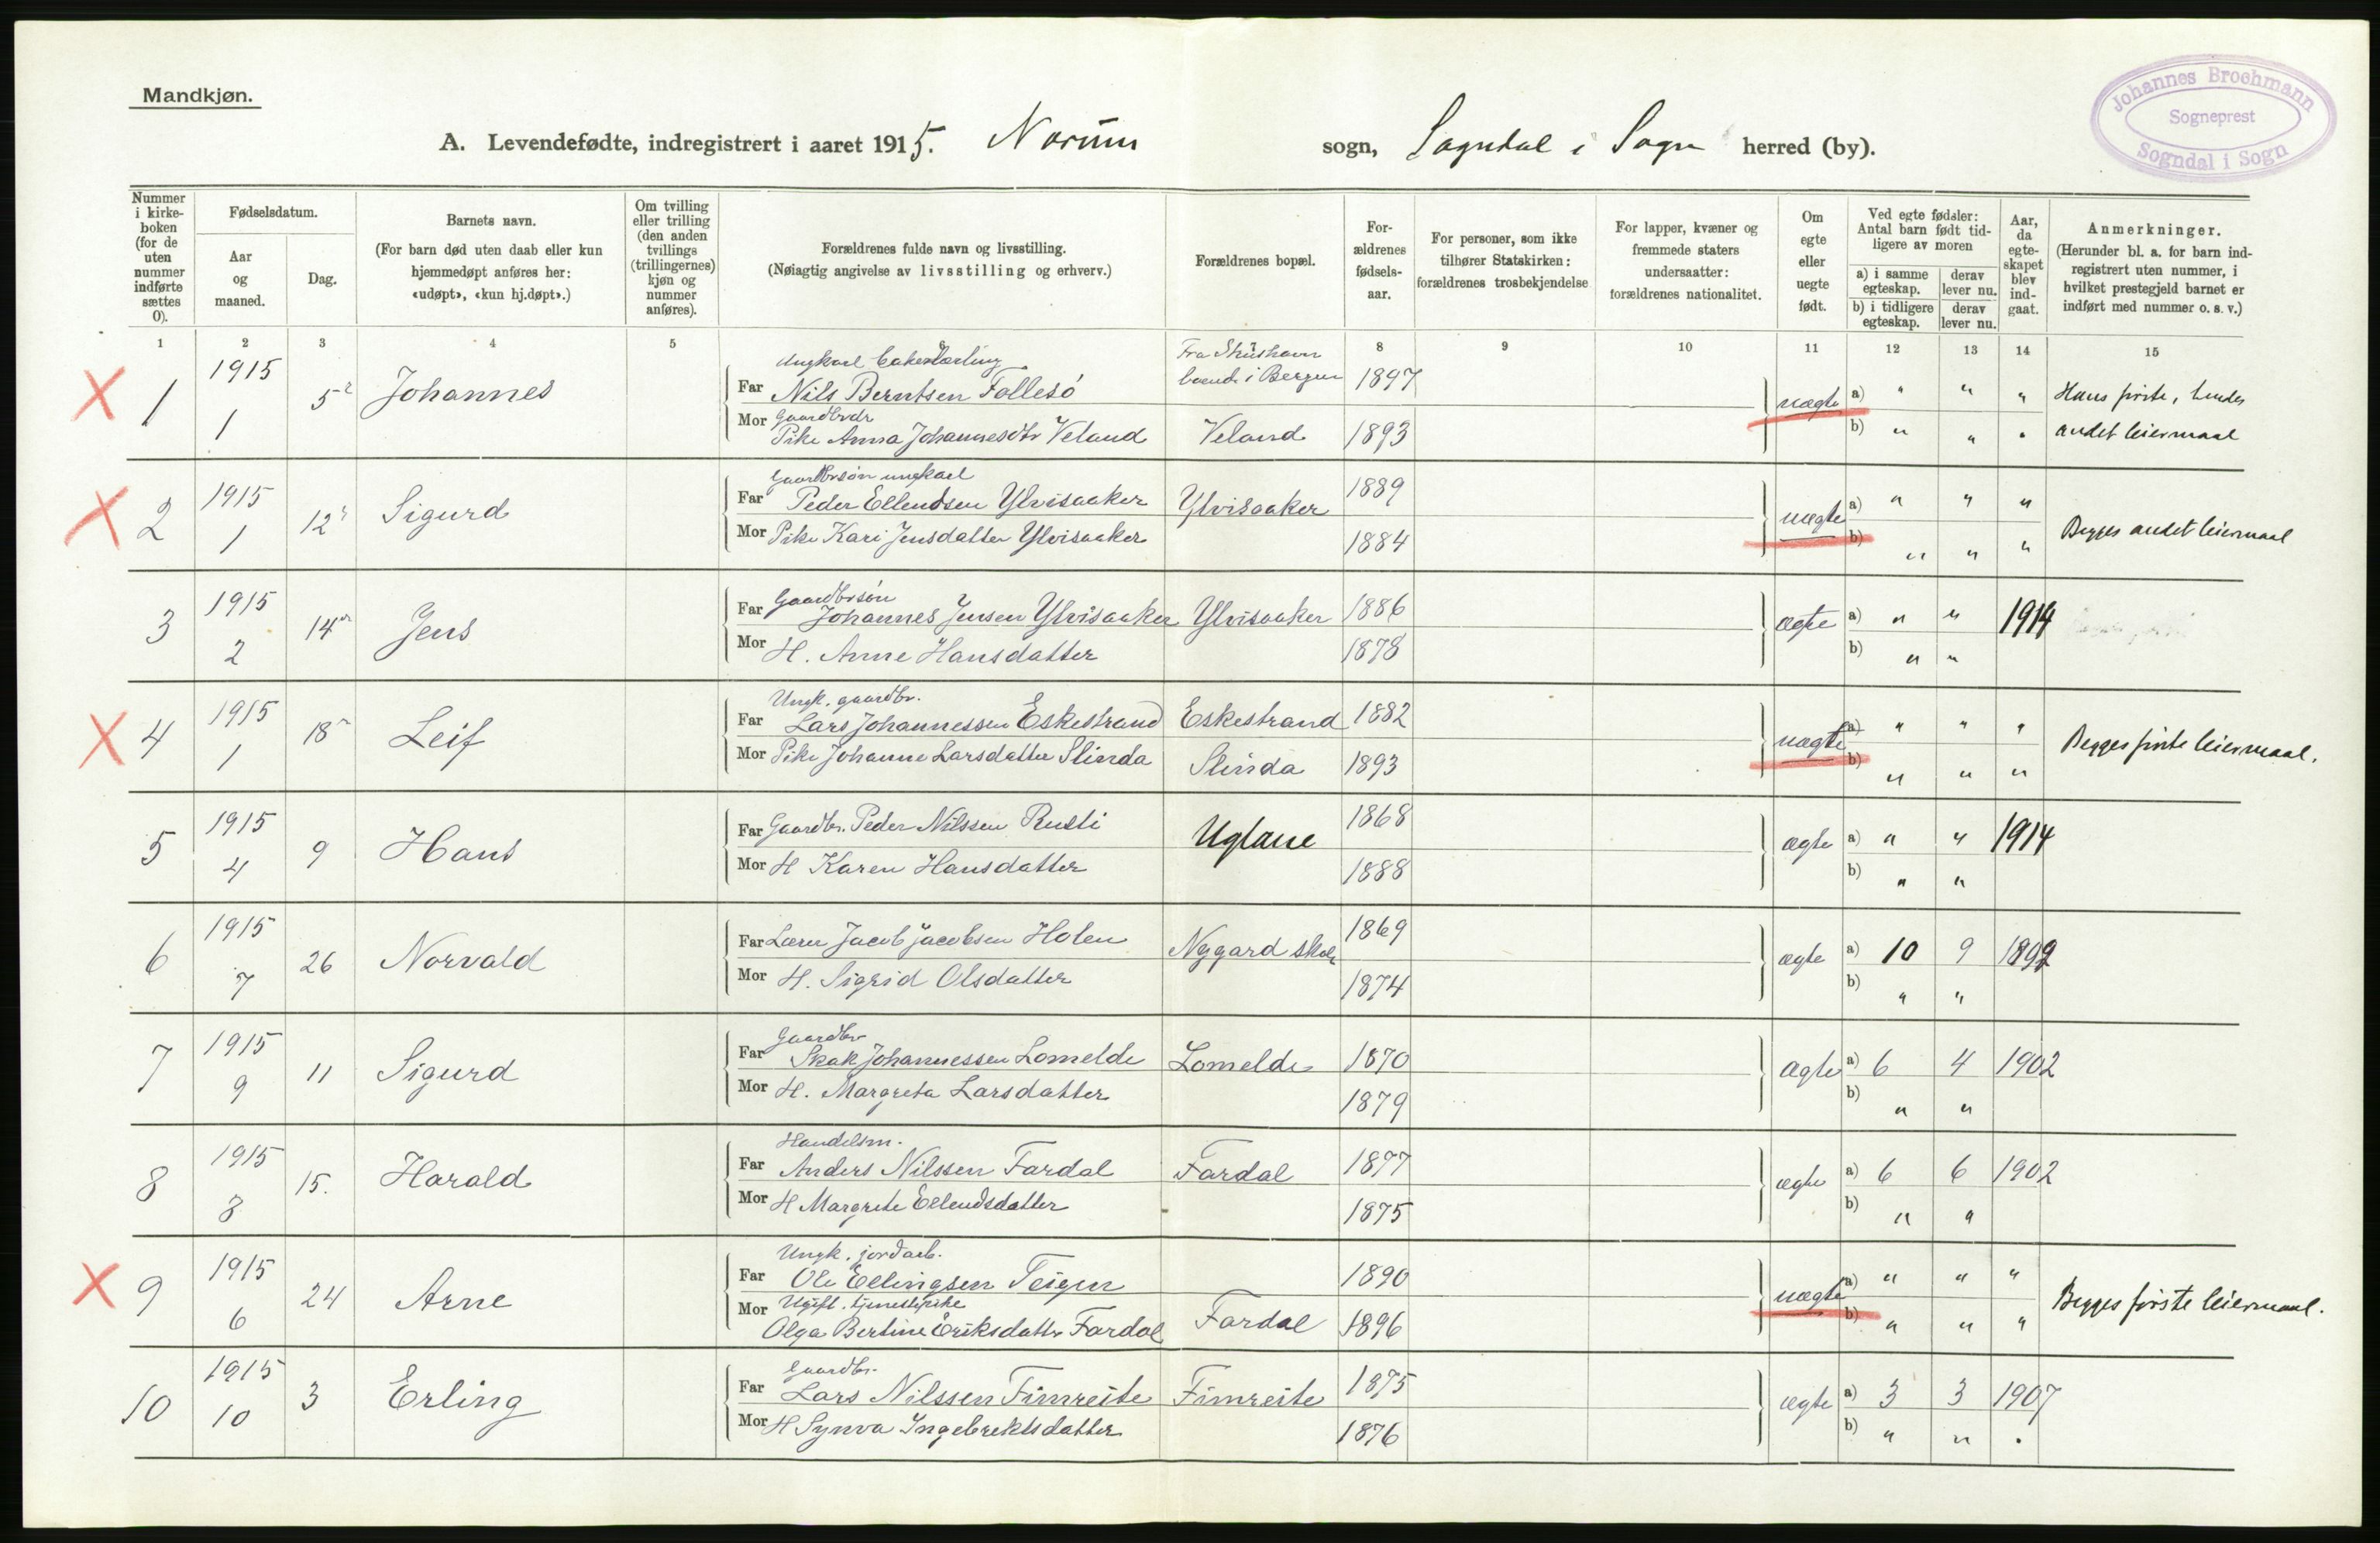 Mandkjøn.
A. Levendefødte, indregistrert i aaret 1915. Norum sogn, Sogndal i Sogn herred (by).
Johannes Brochmann
Sogneprest
Sogndal i Sogn
Nummer i kirkeboken (for de uten nummer indførte sættes 0).
Fødselsdatum.
Aar og maaned.
Dag.
Barnets navn.
(For barn død uten daab eller kun hjemmedøpt anføres her: «udøpt», «kun hj.døpt».)
Om tvilling eller trilling (den anden tvillings (trillingernes) kjøn og nummer anføres).
Forældrenes fulde navn og livsstilling.
(Nøiagtig angivelse av livsstilling og erhverv.)
Forældrenes bopæl.
For-ældrenes fødsels-aar.
For personer, som ikke tilhører Statskirken: forældrenes trosbekjendelse
For lapper, kvæner og fremmede staters undersaatter: forældrenes nationalitet.
Om egte eller uegte født.
Ved egte fødsler: Antal barn født tidligere av moren
a) i samme egteskap.
derav lever nu.
b) i tidligere egteskap.
derav lever nu.
Aar, da egteskapet blev indgaat.
Anmerkninger.
(Herunder bl. a. for barn indregistrert uten nummer, i hvilket prestegjeld barnet er indført med nummer o. s. v.)
1 2 3 4 5 8 9 10 11 12 13 14 15
1 1915 1 5 Johannes
Far Ungkarl
Nils Berntsen Follesö
i Bergen 1897
Mor Gaardbrdr
Pike Anna Johannesdtr Veland Veland 1893
uægte a) " " " Hans förste, hendes
b) " " " andet leiermaal
2 1915 1 12 Sigurd
Far Gaardbrsön ungkarl
Peder Ellendsen Ylvisaaker Ylvisaaker 1889
Mor Pike Kari Jensdatter Ylvisaaker 1884
uægte a) " " "
b) " " " Begges andet leiermaal
3 1915 2 14 Jens
Far Gaardbrsön
Johannes Jensen Ylvisaaker Ylvisaaker 1886
Mor H. Anne Hansdatter 1878
ægte a) " " 1914
b) " "
4 1915 1 18 Leif
Far Ungk. gaardbr.
Lars Johannessen Eskestrand Eskestrand 1882
Mor Pike Johanne Larsdatter Slinda Slinda 1893
uægte a) " " "
b) " " " Begges förste leiermaal.
5 1915 4 9 Hans
Far Gaardbr. Peder Nilssen Rutli Uglane 1868
Mor H Karen Hansdatter 1888
ægte a) " " 1914
b) " "
6 1915 7 26 Norvald
Far Lærer Jacob Jacobsen Holen Nygard skole 1869
Mor H. Sigrid Olsdatter 1874
ægte a) 10 9 1892
b) " "
7 1915 9 11 Sigurd
Far Gaardbr
Skak Johannessen Lomelde Lomelde 1870
Mor H. Margreta Larsdatter 1879
ægte a) 6 4 1902
b) " "
8 1915 8 15. Harald
Far Handelsm.
Anders Nilssen Fardal Fardal 1877
Mor H Margrete Ellendsdatter 1875
ægte a) 6 6 1902
b) " "
9 1915 6 24 Arne
Far Ungk. jordarb.
Ole Ellingsen Teigen 1890
Mor Ugift. tjenestepike
Olga Bertine Eriksdatter Fardal Fardal 1896
uægte a) " " "
b) " " " Begges förste leiermaal.
10 1915 10 3 Erling
Far Gaardbr.
Lars Nilssen Fimreite Fimreite 1875
Mor H Synva Ingebrektsdatter 1876
ægte a) 3 3 1907
b) " " "